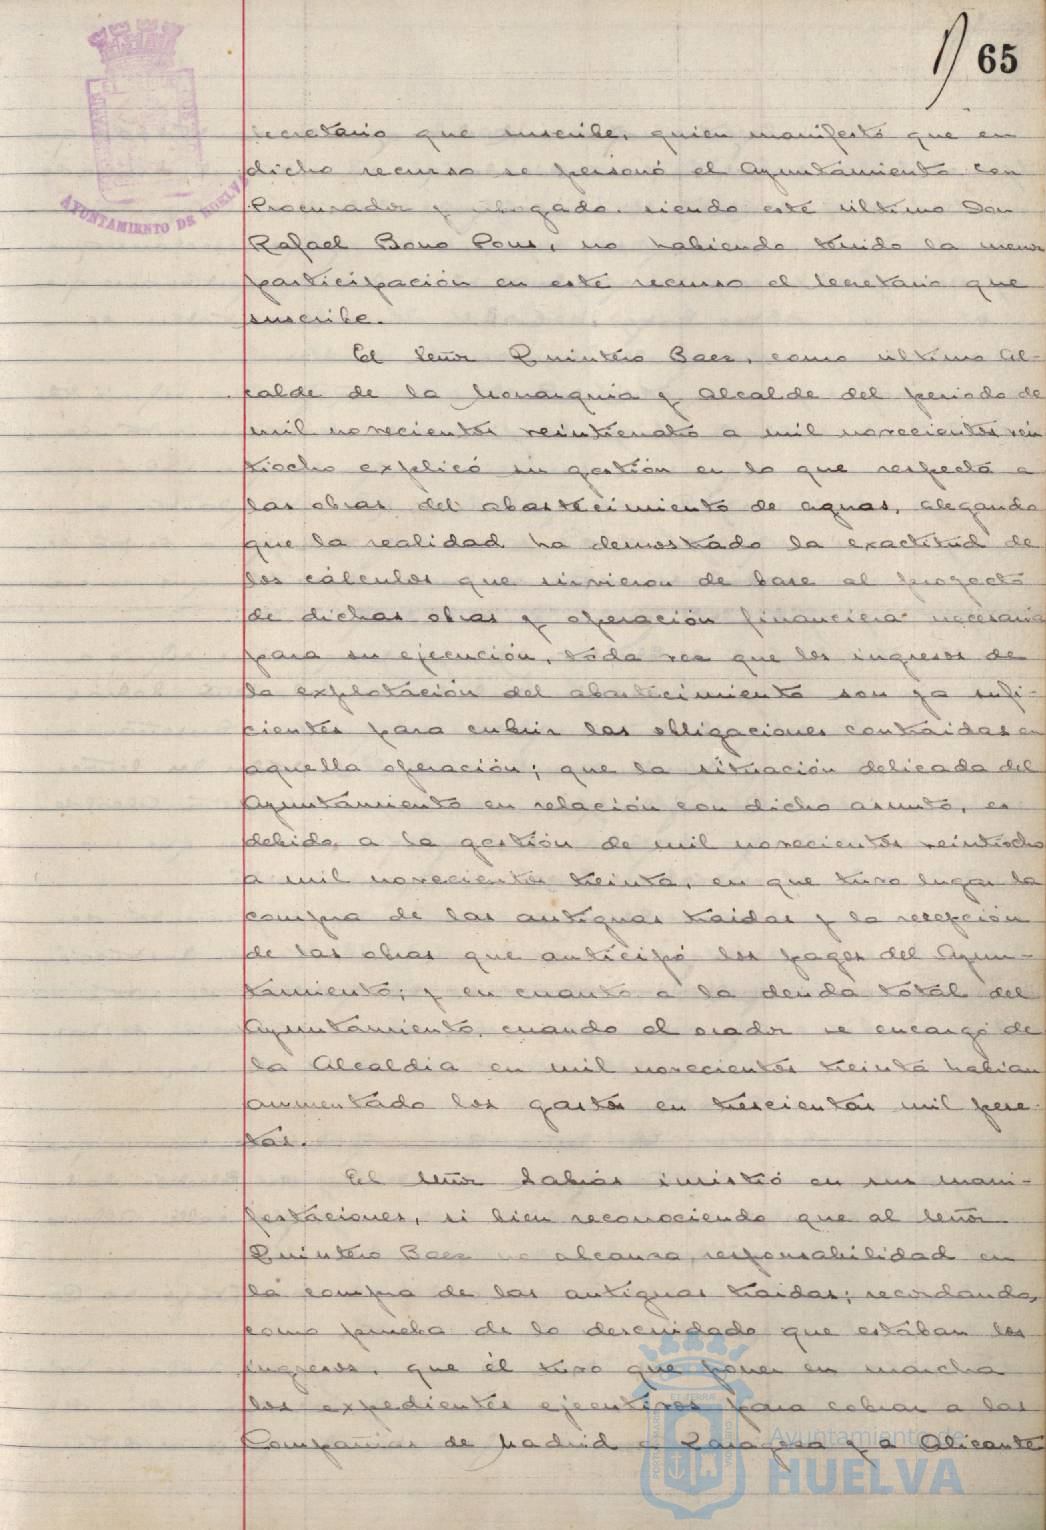 65
AYUNTAMIENTO DE HUELVA
Secretario que suscribe, quien manifestó que en
dicho recurso se personó el Ayuntamiento con
Procurador y abogado, siendo este último Don
Rafael Bono Pons, no habiendo tenido la menor
participación en este recurso el Secretario que
suscribe.
El Señor Quintero Baez, como último Al-
calde de la Monarquía y Alcalde del periodo de
mil novecientos veinticuatro a mil novecientos vein
tiocho explicó su gestión en lo que respecta a
las obras del abastecimiento de aguas, alegando
que la realidad ha demostrado la exactitud de
los cálculos que sirvieron de base al proyecto
de dichas obras y operación financiera necesaria
para su ejecución, toda vez que los ingresos de
la explotación del abastecimiento son ya sufi-
cientes para cubrir las obligaciones contraidas en
aquella operación; que la situación delicada del
Ayuntamiento en relación con dicho asunto, es
debido a la gestión de mil novecientos veintiocho
a mil novecientos treinta, en que tuvo lugar la
compra de las antiguas traidas y la recepción
de las obras que anticipó los pagos del Ayun-
tamiento; y en cuanto a la deuda total del
Ayuntamiento, cuando el orador se encargó de
la Alcaldía en mil novecientos treinta habian
aumentado los gastos en trescientas mil pese-
tas.
El Señor Sabrás insistió en sus mani-
festaciones, si bien reconociendo que al Señor
Quintero Baez no alcanza responsabilidad en
la compra de las antiguas traidas; recordando,
como prueba de lo descuidado que estában los
ingresos, que él tuvo que poner en marcha
los expedientes ejecutivos para cobrar a las
Compañías de Madrid a Zaragoza y a Alicante
Ayuntamiento de
HUELVA